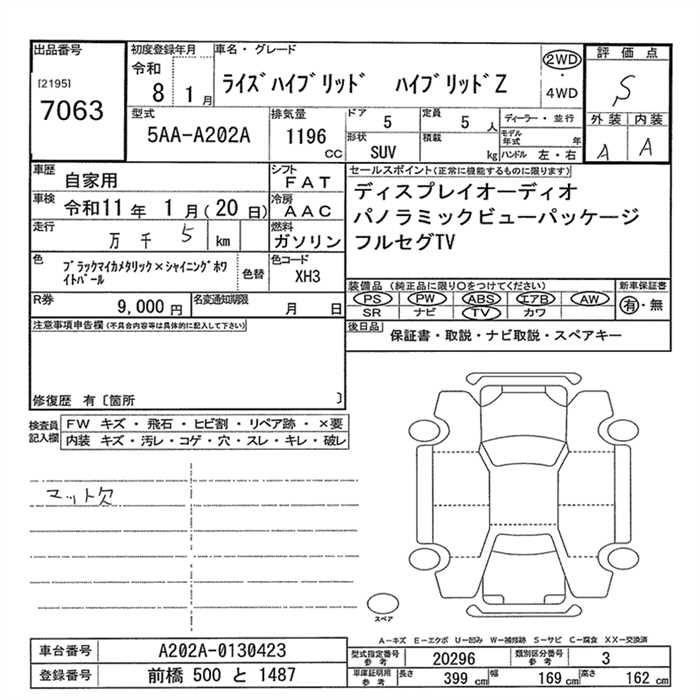 出品番号
[2195]
7063
初度登録年月
令和
8 1月
車名・グレード
ライズハイブリッド ハイブリッドZ
2WD
・
4WD
評価点
S
外装 内装
A A
型式
5AA-A202A
排気量
1196
cc
ドア
5
定員
5 人
形状
SUV
積載
kg
ディーラー・並行
モデル年式 年
ハンドル 左・右
車歴
自家用
シフト
FAT
車検
令和11年 1月(20日)
冷房
AAC
走行
万 千 5 km
燃料
ガソリン
色
ブラックマイカメタリック×シャイニングホワイトパール
色替
色コード
XH3
R券
9,000円
名変通知期限
月 日
セールスポイント(正常に機能するものに限ります)
ディスプレイオーディオ
パノラミックビューパッケージ
フルセグTV
装備品 (純正品に限り○をつけてください)
PS PW ABS エアB AW
SR ナビ TV カワ
新車保証書
有・無
後日品
保証書・取説・ナビ取説・スペアキー
注意事項申告欄(不具合内容等は具体的に記入して下さい)
修復歴 有〔箇所 〕
検査員記入欄
FW キズ・飛石・ヒビ割・リペア跡・×要
内装 キズ・汚レ・コゲ・穴・スレ・キレ・破レ
マット欠
スペア
A-キズ E-エクボ U-凹み W-補修跡 S-サビ C-腐食 XX-交換済
車台番号
A202A-0130423
登録番号
前橋 500 と 1487
型式指定番号参考
20296
類別区分番号参考
3
車庫証明用参考
長さ 399 cm 幅 169 cm 高さ 162 cm